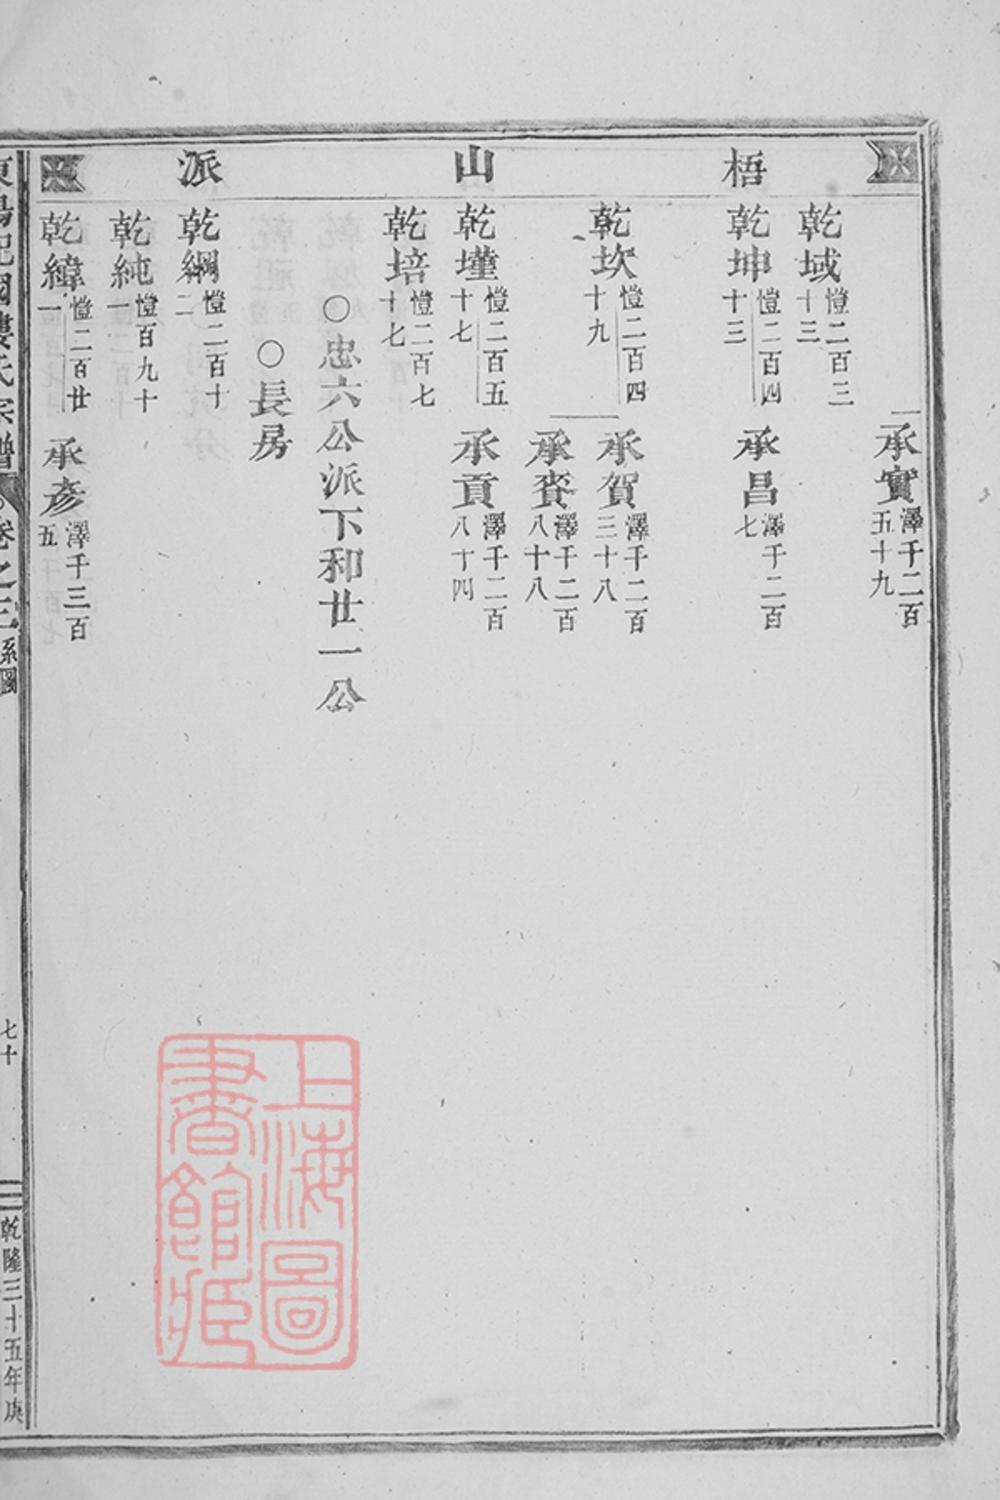 梧山派
承實澤千二百五十九
乾域愷二百三十三
乾坤愷二百四十三
承昌澤千二百七
乾坎愷二百四十九
承賀澤千二百三十八
承賚澤千二百八十八
乾墐愷二百五十七
承貢澤千二百八十四
乾培愷二百七十七
○忠六公派下和廿一公
○長房
乾綱愷二百十二
乾純愷百九十一
乾緯愷二百廿一
承彥澤千三百五
東陽杞國婁氏宗譜
卷之三
系圖
七十
乾隆三十五年庚
上海圖書館藏